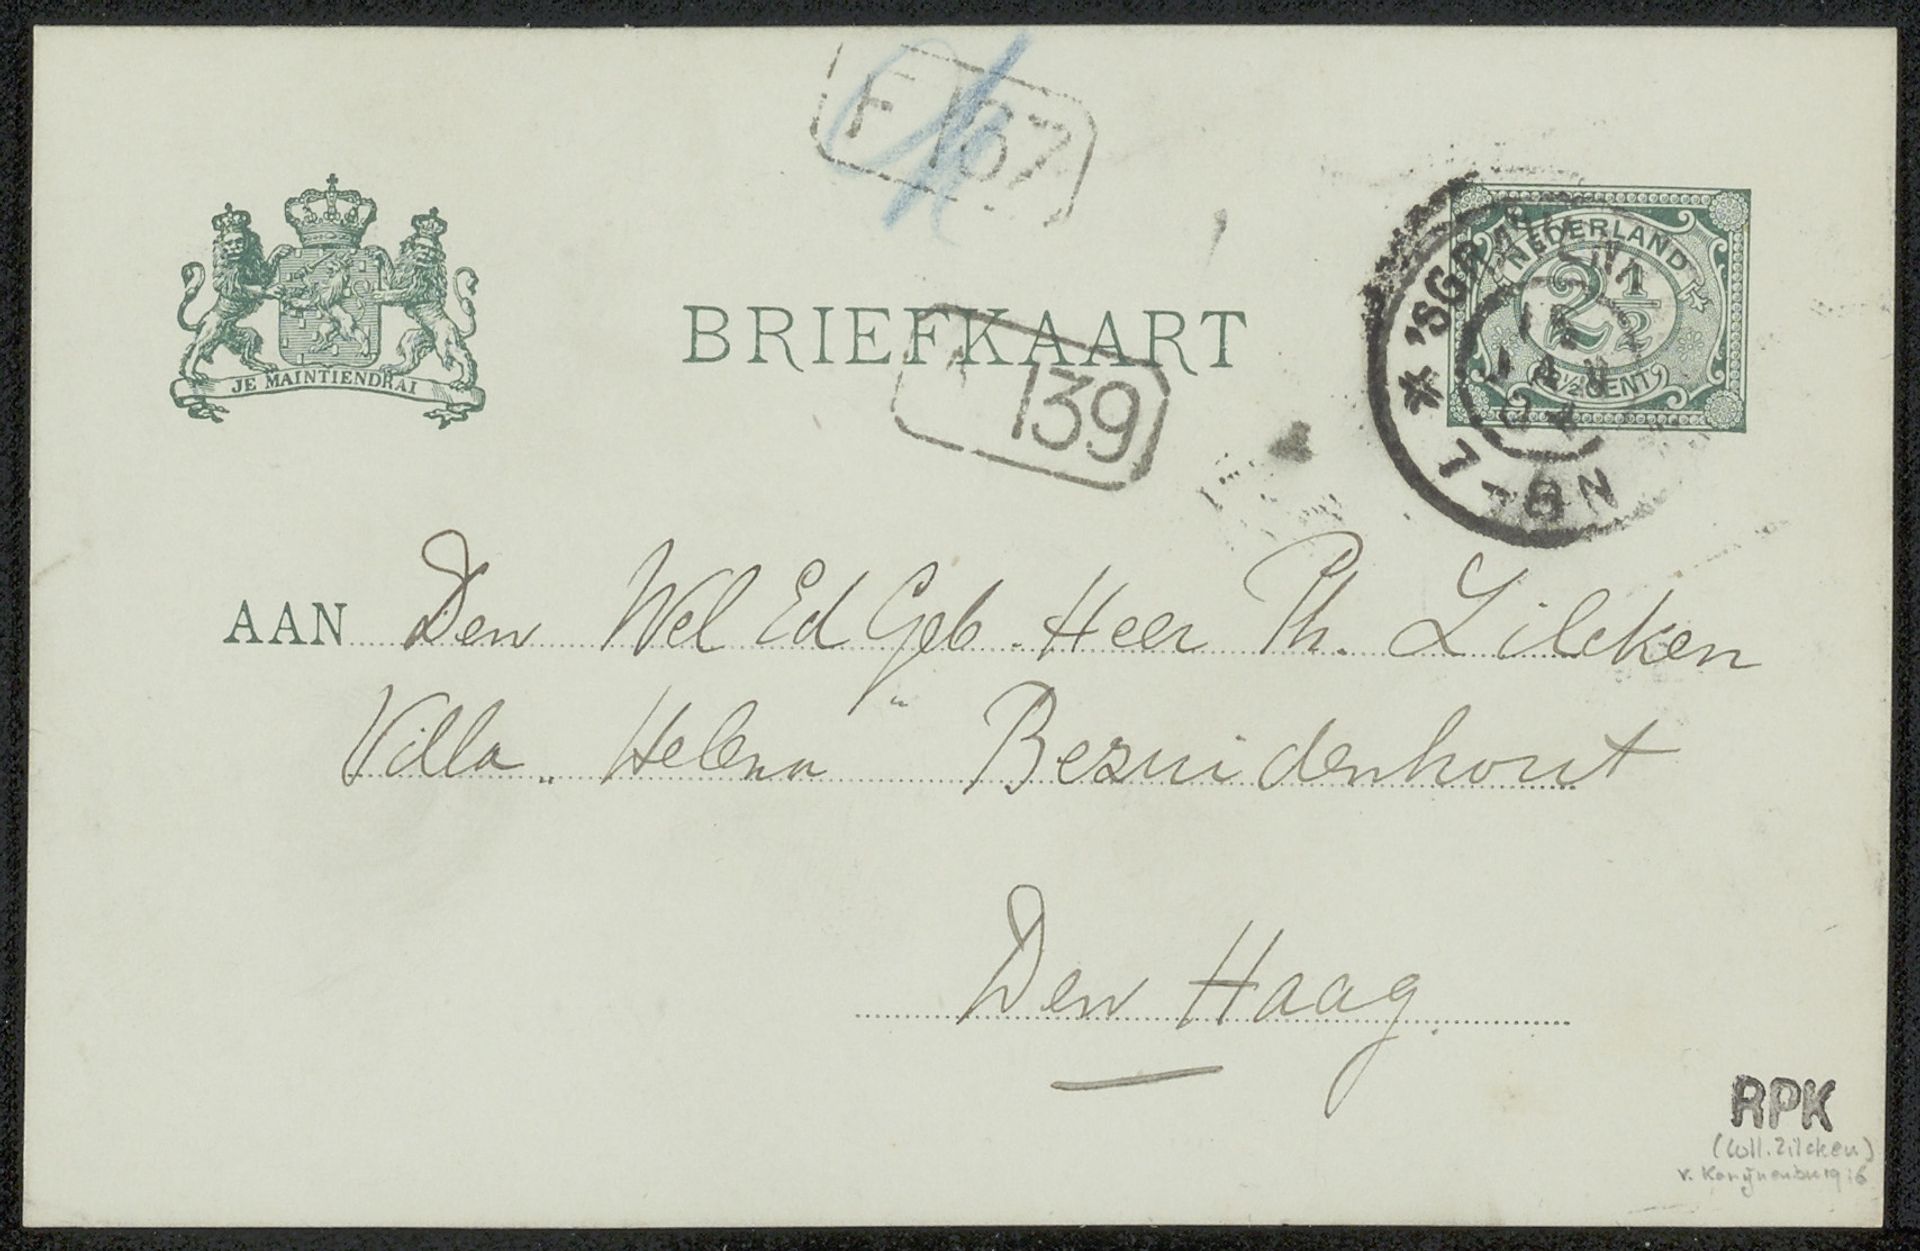 F 167
JE MAINTIENDRAI
BRIEFKAART
139
NEDERLAND
2 1/2
2½ CENT
'SGRAVENHAGE
15
JAN
04
7-8N
AAN Den Wel Ed Geb. Heer Ph. Zilcken
Villa. Helena Bezuidenhout
Den Haag
RPK
(Coll. Zilcken)
v. Konijnenburg 16